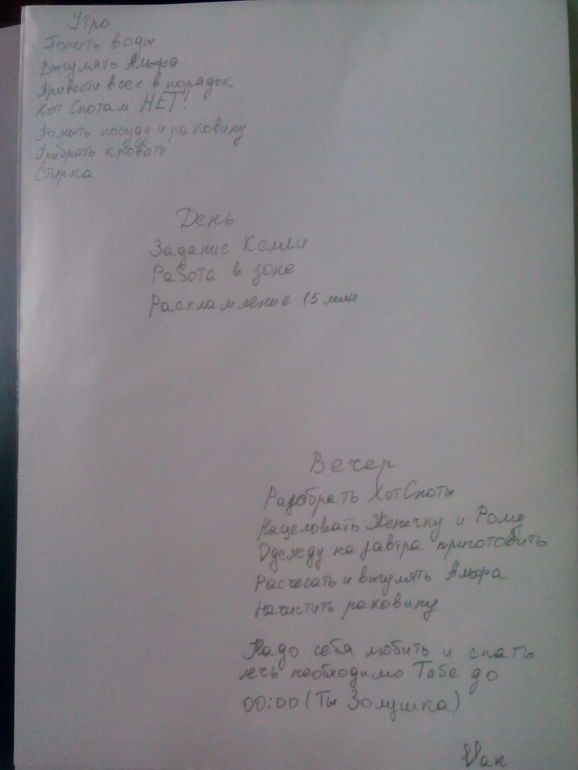 Утро
Попить воды
Выгулять Альфа
Привести всех в порядок
Хот Спотам НЕТ!
Помыть посуду и раковину
Прибрать кровати
Стирка
День
Задание Келли
Работа в зоне
Расхламление 15 мин
Вечер
Разобрать ХотСпоты
Нацеловать Женечку и Рому
Одежду на завтра приготовить
Расчесать и выгулять Альфа
Начистить раковину
Надо себя любить и спать
лечь необходимо Тебе до
00:00 (Ты Золушка)